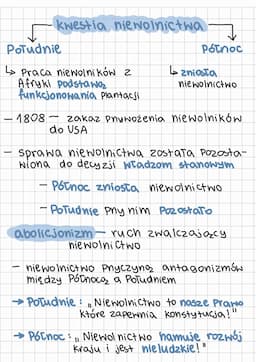 kwestia niewolnictwa
Południe
Północ
↳ Praca niewolników z
Afryki podstawą
funkcjonowania plantacji
↳ zniosła
niewolnictwo
- 1808 - zakaz przywożenia niewolników
do USA
- sprawa niewolnictwa została pozosta-
wiona do decyzji władzom stanowym
- Północ zniosła niewolnictwo
- Południe przy nim pozostało
abolicjonizm - ruch zwalczający
niewolnictwo
- niewolnictwo przyczyną antagonizmów
między Północą a Południem
→ Południe: „Niewolnictwo to nasze prawo
które zapewnia konstytucja!"
→ Północ: „Niewolnictwo hamuje rozwój
kraju i jest nieludzkie!"